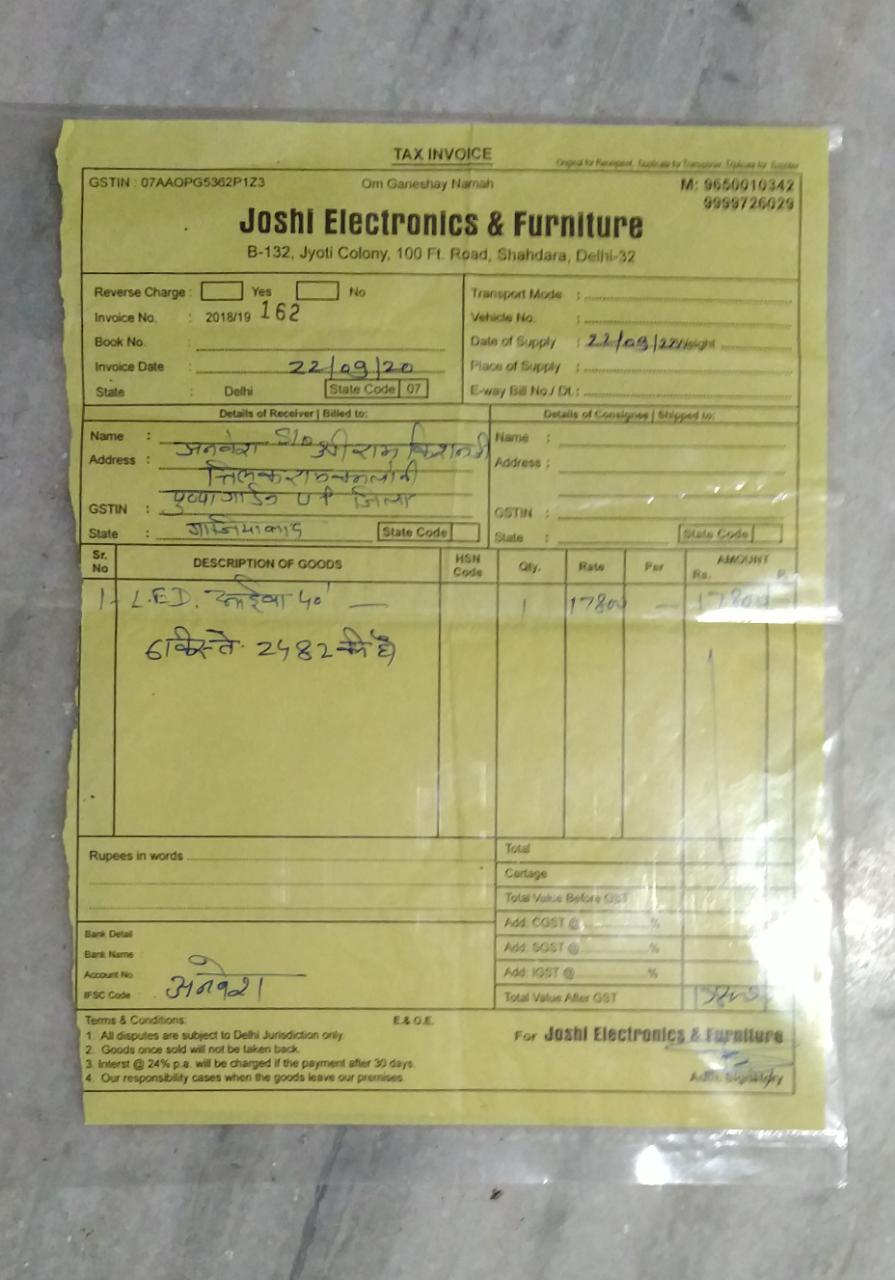 TAX INVOICE
Original for Receipient, Duplicate for Transporter, Triplicate for Supplier
GSTIN : 07AAOPG5362P1Z3 Om Ganeshay Namah M: 9650010342
9999726029
Joshi Electronics & Furniture
B-132, Jyoti Colony, 100 Ft. Road, Shahdara, Delhi-32
Reverse Charge : Yes No
Invoice No. : 2018/19 162
Book No. :
Invoice Date : 22/09/20
State : Delhi State Code 07
Transport Mode :
Vehicle No. :
Date of Supply : 22/09/20
Place of Supply :
E-way Bill No./ Dt.:
Details of Receiver | Billed to:
Name : S/o श्री राम
Address :
GSTIN : गार्डन U P जिला
State : गाजियाबाद State Code
Details of Consignee | Shipped to:
Name :
Address :
GSTIN :
State : State Code
Sr. No DESCRIPTION OF GOODS HSN Code Qty. Rate Per AMOUNT Rs. P.
1- L.E.D. 40" — 1 17800 — 17800
6 किस्ते 2482 की है
Rupees in words
Total
Cartage
Total Value Before GST
Add: CGST @ %
Add: SGST @ %
Add: IGST @ %
Total Value After GST 17800
Bank Detail
Bank Name
Account No
IFSC Code :
Terms & Conditions: E.& O.E.
1. All disputes are subject to Delhi Jurisdiction only.
2. Goods once sold will not be taken back.
3. Interst @ 24% p.a. will be charged if the payment after 30 days.
4. Our responsibility cases when the goods leave our premises
For Joshi Electronics & Furniture
Auth. Signatory